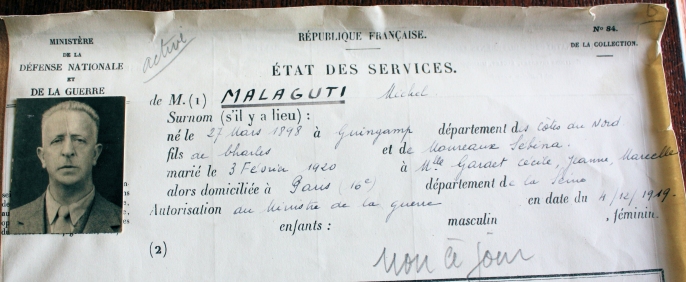 MINISTÈRE
DE LA
DÉFENSE NATIONALE
ET
DE LA GUERRE
activé
RÉPUBLIQUE FRANÇAISE.
N° 84.
DE LA COLLECTION.
ÉTAT DES SERVICES.
de M. (1) MALAGUTI Michel
Surnom (s'il y a lieu) :
né le 27 Mars 1898 à Guingamp département des Côtes du Nord
fils de Charles et de Monreaux Sébina.
marié le 3 Février 1920 à Mlle Garaet Cécile, Jeanne, Marcelle
alors domiciliée à Paris (16e) département de la Seine
Autorisation du Ministre de la guerre en date du 4/12/1919.
enfants : masculin , féminin.
(2)
non à jour